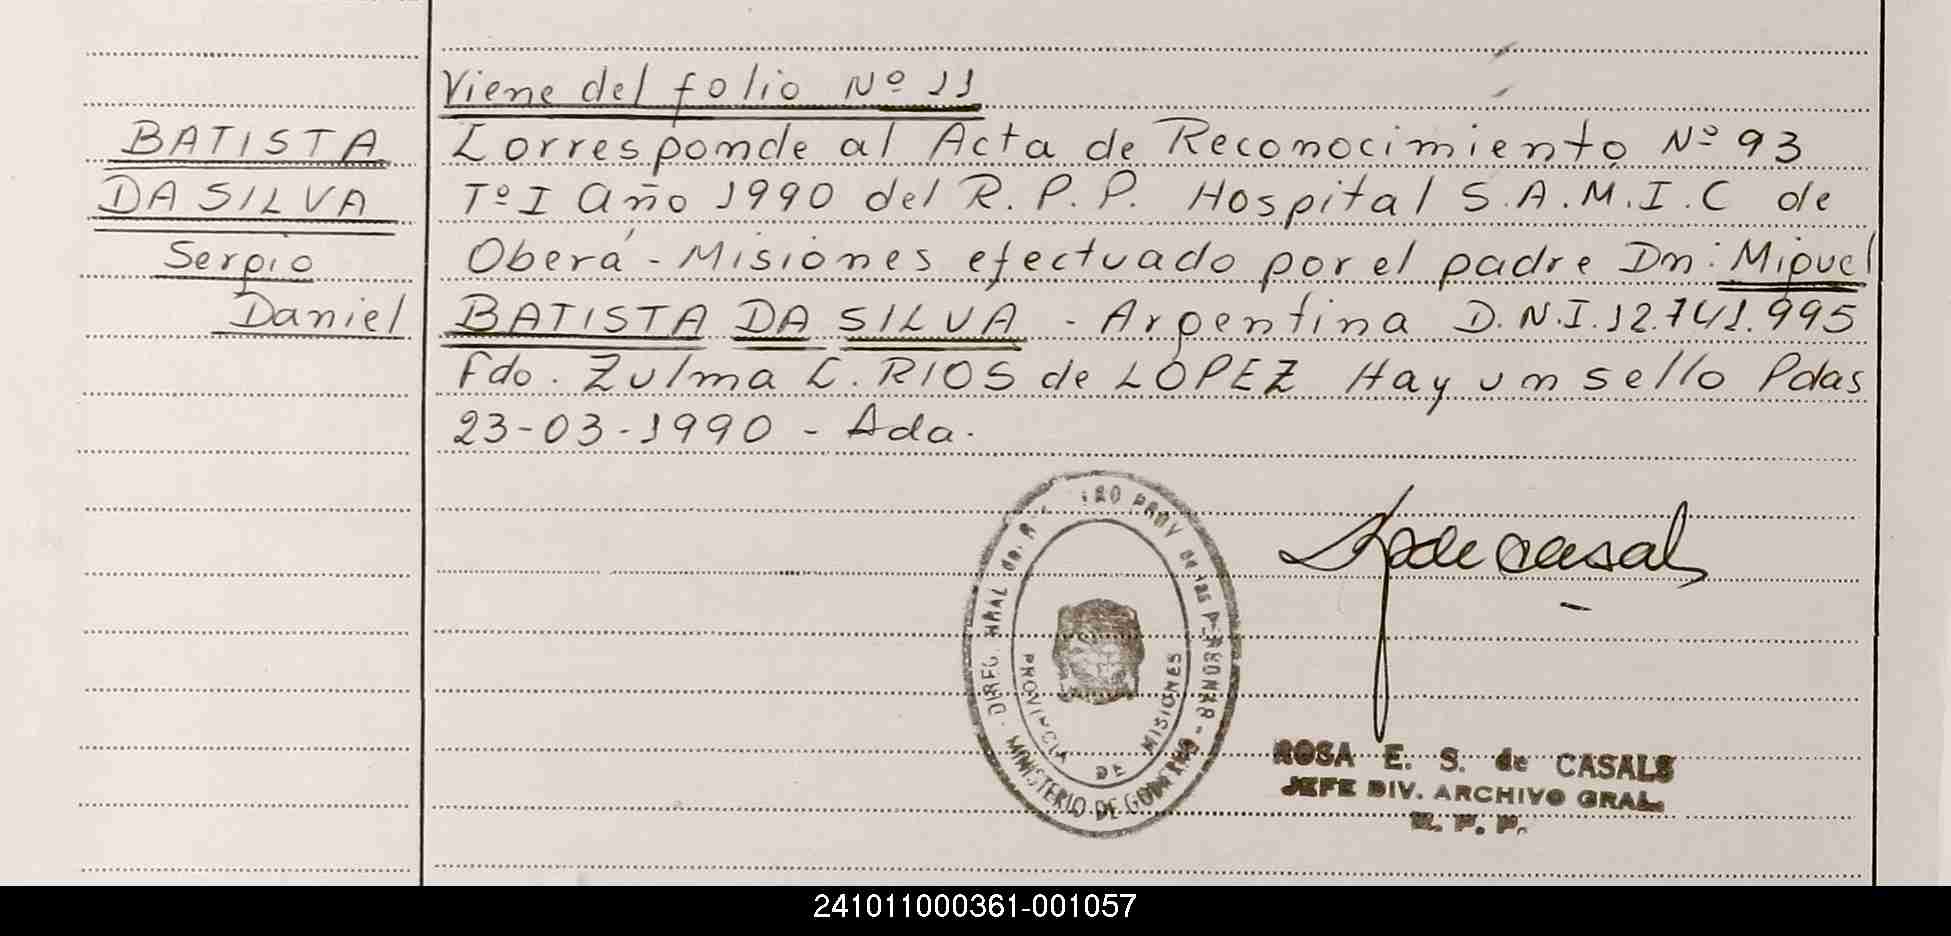 Viene del folio Nº 11
BATISTA
DA SILVA
Sergio
Daniel
Corresponde al Acta de Reconocimiento Nº 93
Tº I Año 1990 del R. P. P. Hospital S.A.M.I.C de
Oberá - Misiones efectuado por el padre Dn: Miguel
BATISTA DA SILVA - Argentina D.N.I. 12.741.995
Fdo. Zulma C. RIOS de LOPEZ Hay un sello Pdas
23-03-1990 - Ada.
DIREC. GRAL de. R PROV de las PERSONAS -
MINISTERIO DE GOBIERNO
PROVINCIA DE MISIONES
de Casals
ROSA E. S. de CASALS
JEFE DIV. ARCHIVO GRAL.
R. P. P.
241011000361-001057